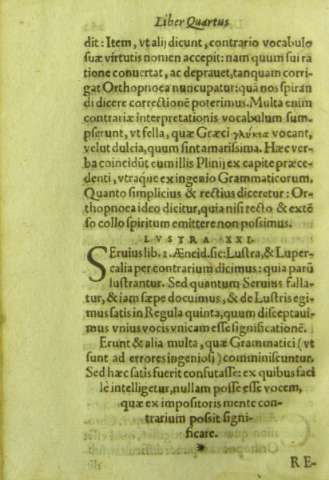 Liber Quartus
dit: Item, vt alij dicunt, contrario vocabulo
suæ virtutis nomen accepit: nam quum sui ra
tione conuertat, ac deprauet, tanquam corri-
gat Orthopnoea nuncupatur: quã nos spiran
di dicere correctionẽ poterimus. Multa enim
contrariæ interpretationis vocabulum sum-
pserunt, vt fella, quæ Græci γλυκέα vocant,
velut dulcia, quum sint amarissima. Hæc ver-
ba coincidũt cum illis Plinij ex capite præce-
denti, vtraque ex ingenio Grammaticorum.
Quanto simplicius & rectius diceretur: Or-
thopnoea ideo dicitur, quia nisi recto & extẽ
so collo spiritum emittere non possimus.
LVSTRA XXI.
SEruius lib. 1. Æneid. sic: Lustra, & Luper-
calia per contrarium dicimus: quia parũ
lustrantur. Sed quantum Seruius falla-
tur, & iam sæpe docuimus, & de Lustris egi-
mus satis in Regula quinta, quum disceptaui-
mus vnius vocis vnicam esse significationẽ.
Erunt & alia multa, quæ Grammatici (vt
sunt ad errores ingeniosi) comminiscuntur.
Sed hæc satis fuerit confutasse: ex quibus faci
lè intelligetur, nullam posse esse vocem,
quæ ex impositoris mente con-
trarium possit signi-
ficare.
RE-